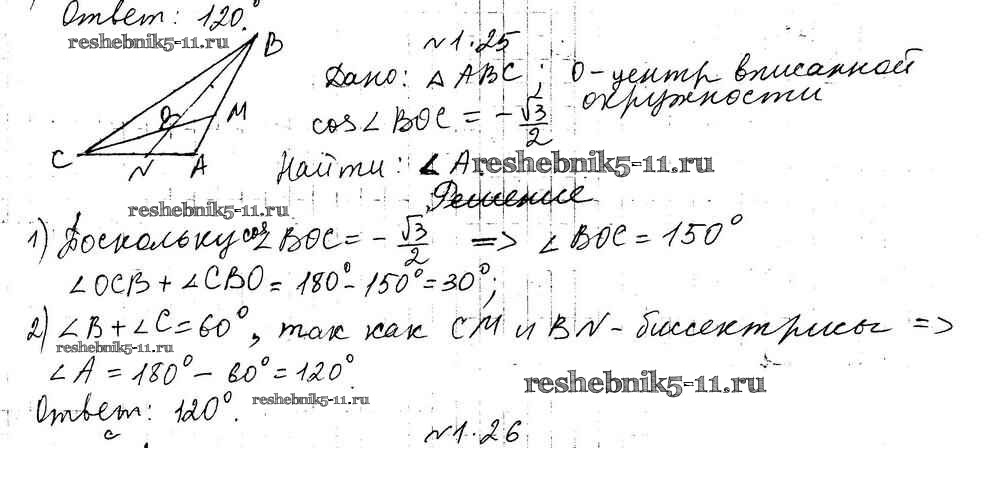 Ответ: 120°.
reshebnik5-11.ru
B
M
O
C
N
A
№1.25
Дано: △ABC; O-центр вписанной
окружности
cos∠BOC = -√3/2
Найти: ∠A.
reshebnik5-11.ru
Решение
reshebnik5-11.ru
1) Поскольку cos∠BOC = -√3/2 => ∠BOC = 150°
∠OCB + ∠CBO = 180° - 150° = 30°;
2) ∠B + ∠C = 60°, так как CM и BN - биссектрисы =>
reshebnik5-11.ru
∠A = 180° - 60° = 120°.
reshebnik5-11.ru
Ответ: 120°.
reshebnik5-11.ru
№1.26